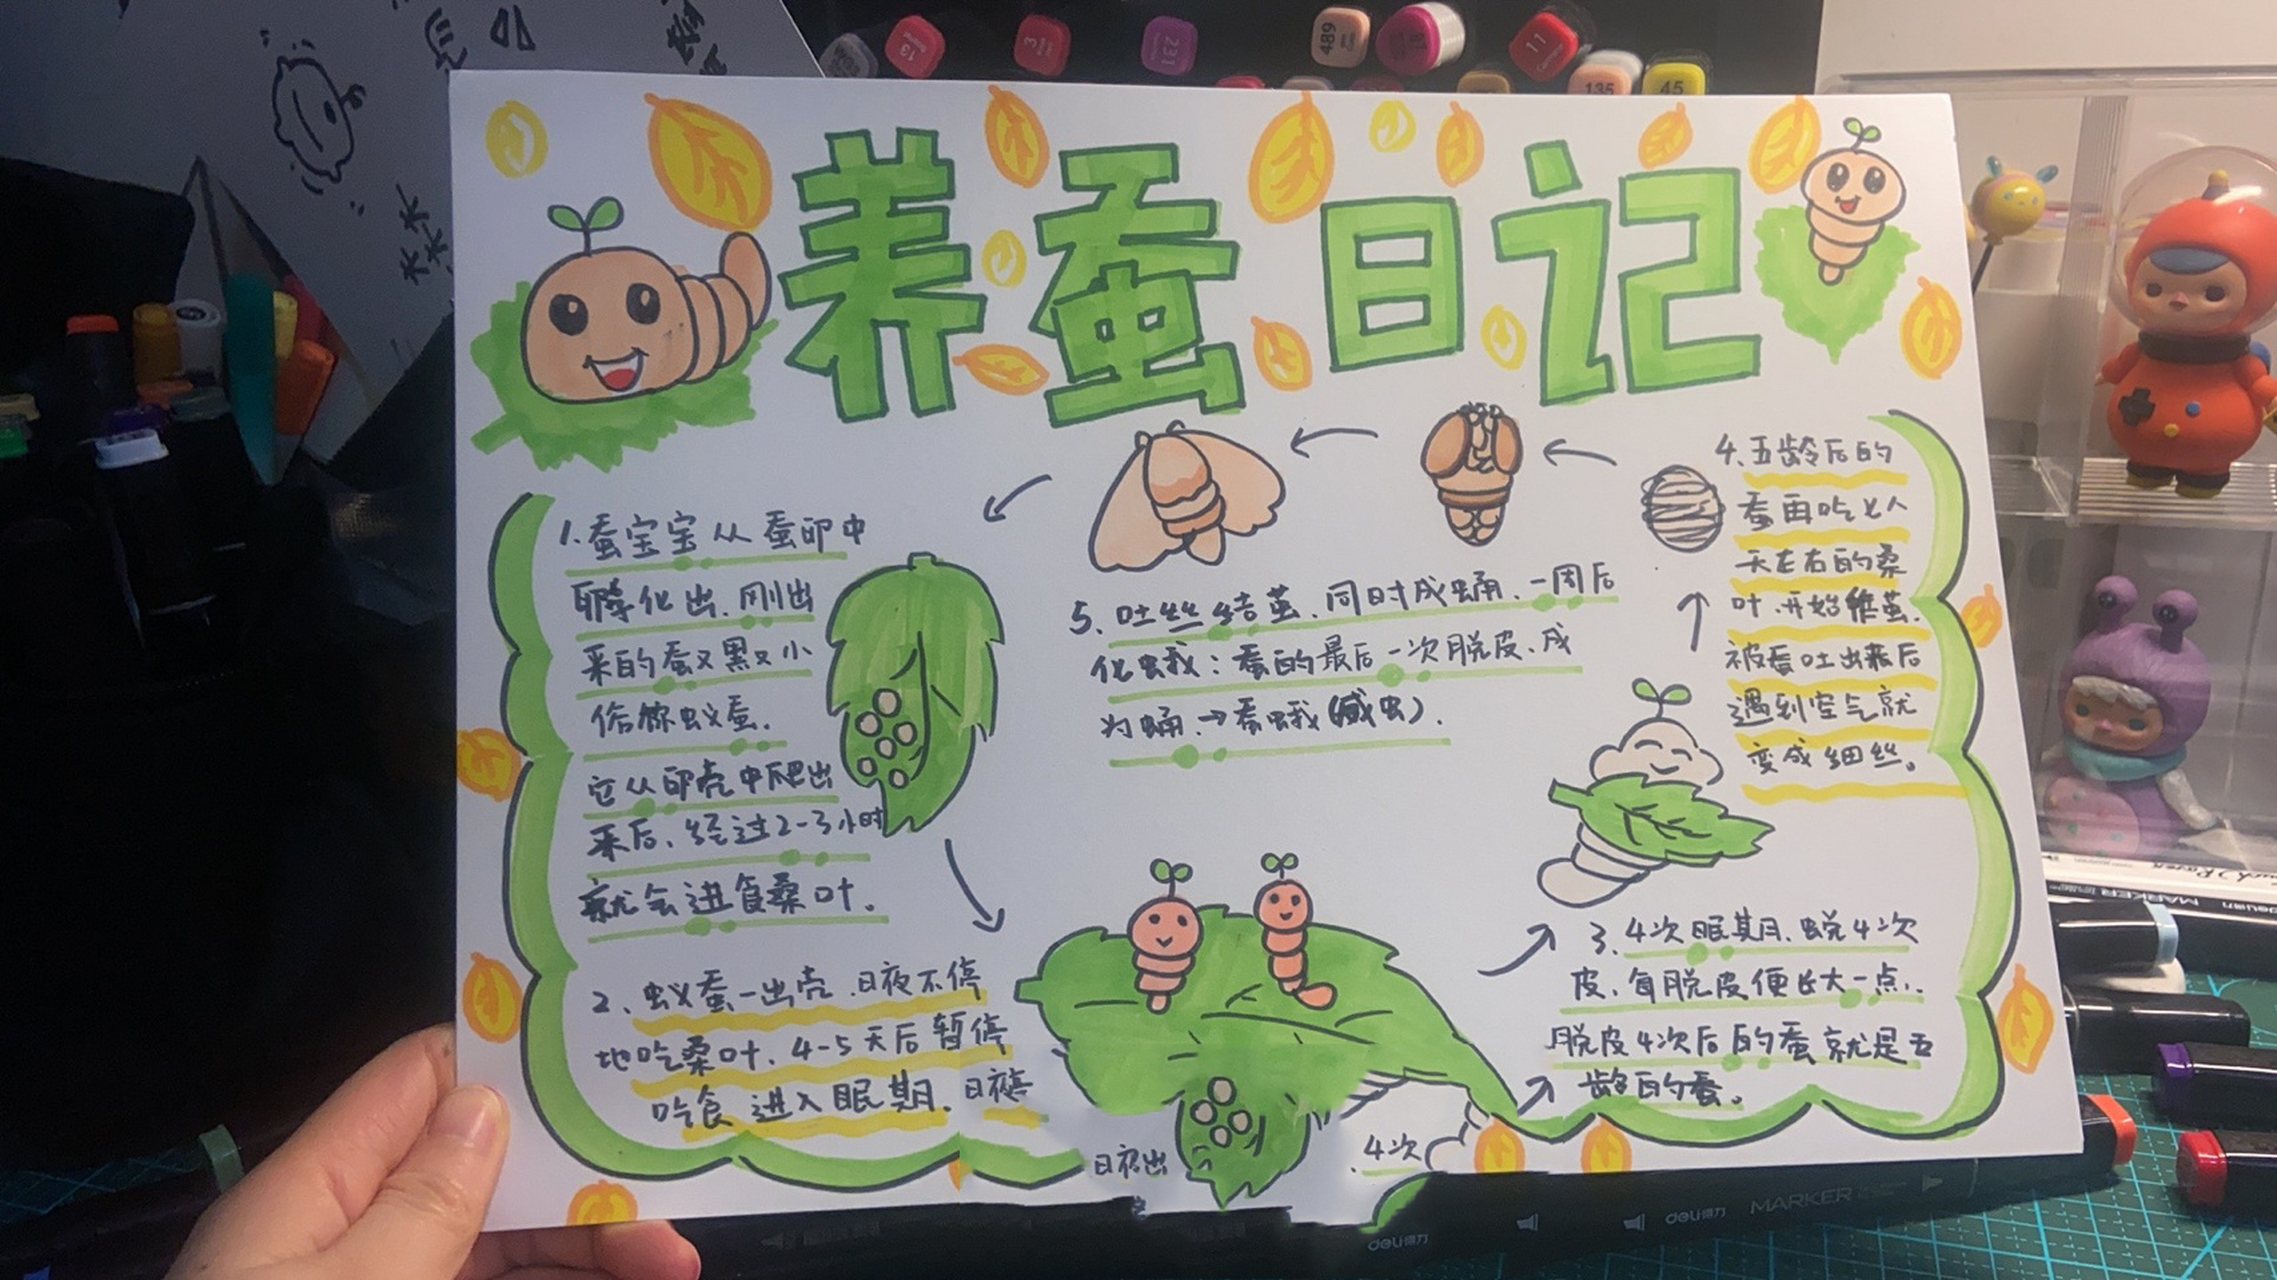 养蚕日记
1.蚕宝宝从蚕卵中
孵化出.刚出
来的蚕又黑又小
俗称蚁蚕.
它从卵壳中爬出
来后.经过2-3小时
就会进食桑叶.
2、蚁蚕一出壳.日夜不停
地吃桑叶.4-5天后暂停
吃食 进入眠期.
日夜
3、4次眠期.蜕4次
皮.每脱皮便长大一点.
脱皮4次后的蚕就是五
龄的蚕。
.4次
4、五龄后的
蚕再吃八
天左右的桑
叶.开始结茧.
被蚕吐出来后
遇到空气就
变成细丝。
5、吐丝结茧.同时成蛹.一周后
化蛾：蚕的最后一次脱皮.成
为蛹.→蚕蛾(成虫).
489
13
3
231
11
135
45
MARKER
deli得力
deli得力
MARKER
deli得力